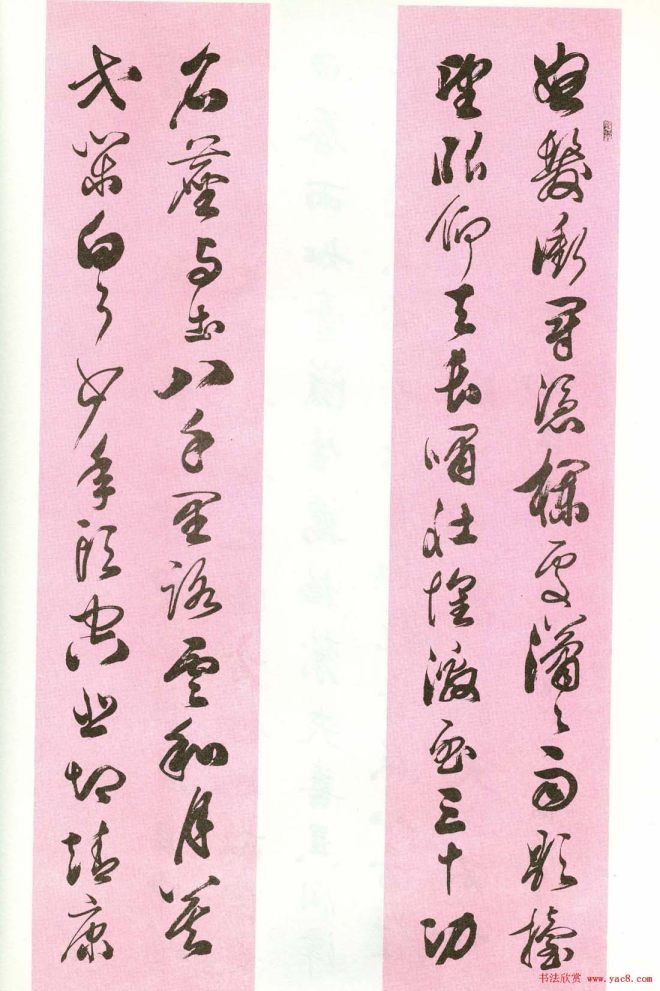 怒髮衝冠憑欄處瀟々雨歇擡
望眼仰天長嘯壯懷激烈三十功
名塵與土八千里路雲和月莫
等閒白了少年頭空悲切靖康
书法欣赏 www.yac8.com